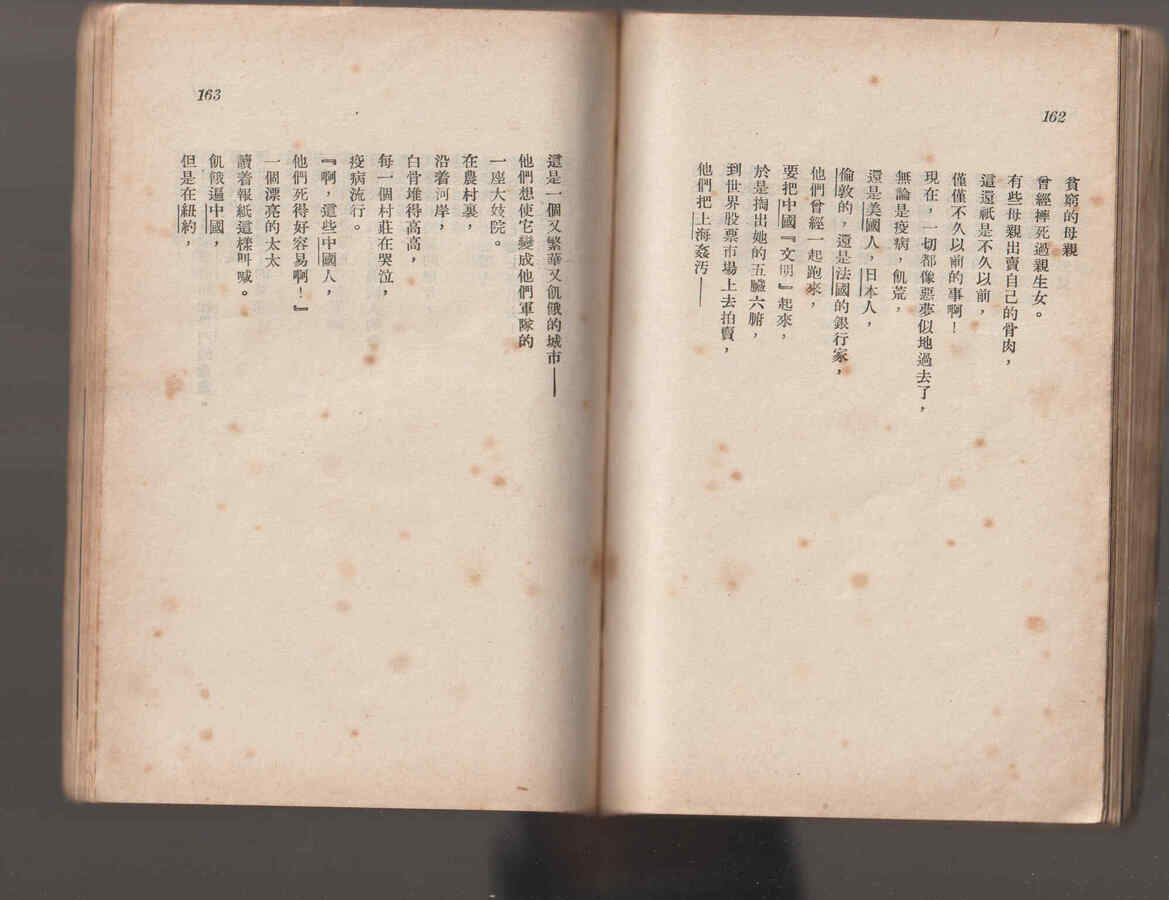 162
貧窮的母親
曾經摔死過親生女。
有些母親出賣自己的骨肉，
這還祇是不久以前，
僅僅不久以前的事啊！
現在，一切都像惡夢似地過去了，
無論是疫病，飢荒，
還是美國人，日本人，
倫敦的，還是法國的銀行家，
他們曾經一起跑來，
要把中國『文明』起來，
於是掏出她的五臟六腑，
到世界股票市場上去拍賣，
他們把上海姦汚——
163
這是一個又繁華又飢餓的城市——
他們想使它變成他們軍隊的
一座大妓院。
在農村裏，
沿着河岸，
白骨堆得高高，
每一個村莊在哭泣，
疫病流行。
『啊，這些中國人，
他們死得好容易啊！』
一個漂亮的太太
讀着報紙這樣叫喊。
飢餓遍中國，
但是在紐約，